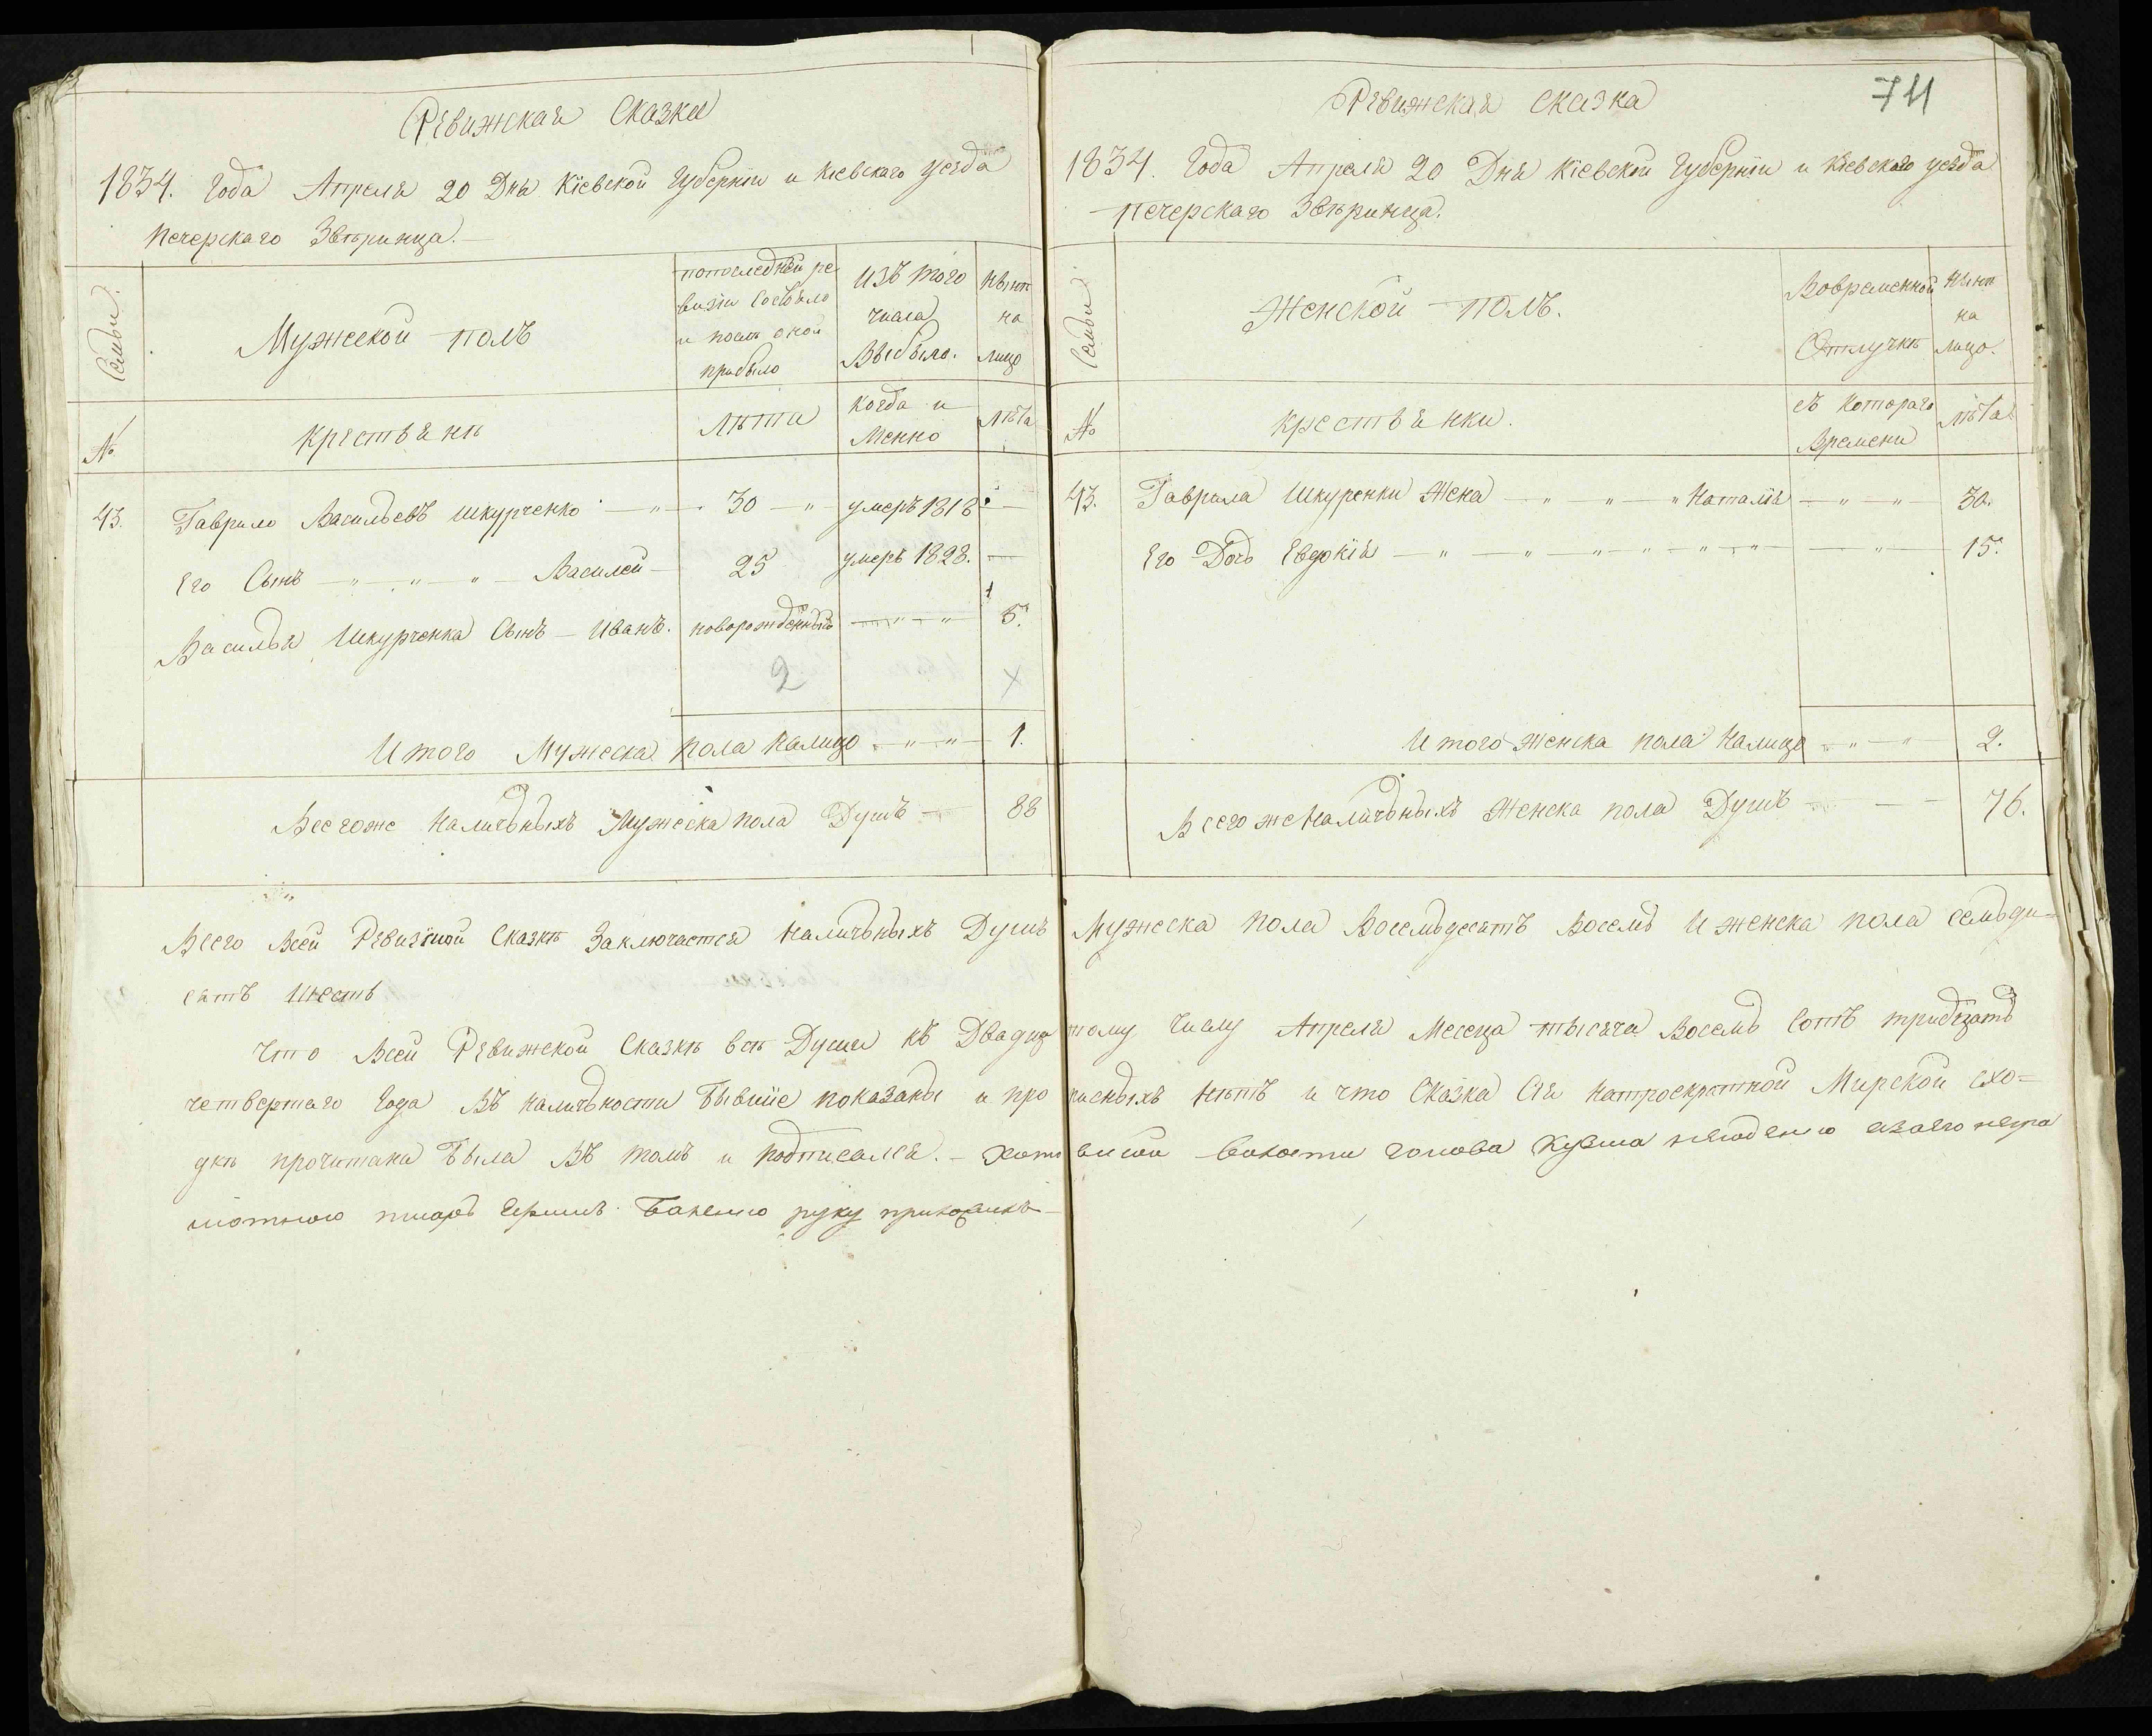 Ревижская Сказка
1834. Года Апреля 20 Дня Кіевской Губерніи и Кіевскаго уезда
Печерскаго Звѣринца.
Семьи
Мужеской полъ
попоследней ре
визіи Состояло
и посли оной
прибыло
Изъ того
числа
Выбыло.
Нынѣ
на
лицо
№
крестьянѣ
Лѣта
Когда и
Менно
Лѣта
43. Гаврило Васильевъ Шкурченко 30 умеръ 1818
Его Сынъ Василей 25 умеръ 1828.
Василья Шкурченка Сынъ Иванъ. новорожденный 5.
2
Итого Мужеска пола Налицо 1.
Всегоже Наличьныхъ Мужеска пола Душъ 88
74
Ревижская Сказка
1834. Года Апреля 20 Дня Кіевской Губерніи и Кіевскаго уезда
Печерскаго Звѣринца.
Семьи
Женской полъ.
Вовременной
Отлучкѣ
Нынѣ
на
лицо.
№
крестьянки.
съ Котораго
Времени
лѣта
43. Гаврила Шкуренки Жена Наталія 30.
Его Дочь Евдокія 15.
Итого Женска пола Налицо 2.
Всего же Наличьныхъ Женска пола Душъ 76.
Всего Всей Ревизкой Сказкѣ Заключается Наличьныхъ Душъ Мужеска пола Восемьдесатъ Восемь И женска пола семьди=
сятъ Шесть
Что Всей Ревижской Сказкѣ всѣ Души къ Двадцатому Числу Апреля Месеца тысяча Восемь Сотъ тридцать
четвертаго Года Въ Наличьности Бывшіе показаны и прописныхъ нѣтъ и что Сказка Сія Натроекратной Мирской схо=
дкѣ прочитана Была Въ томъ и подписался. - волости голова Кузма негра
мотного писарь руку приложилъ